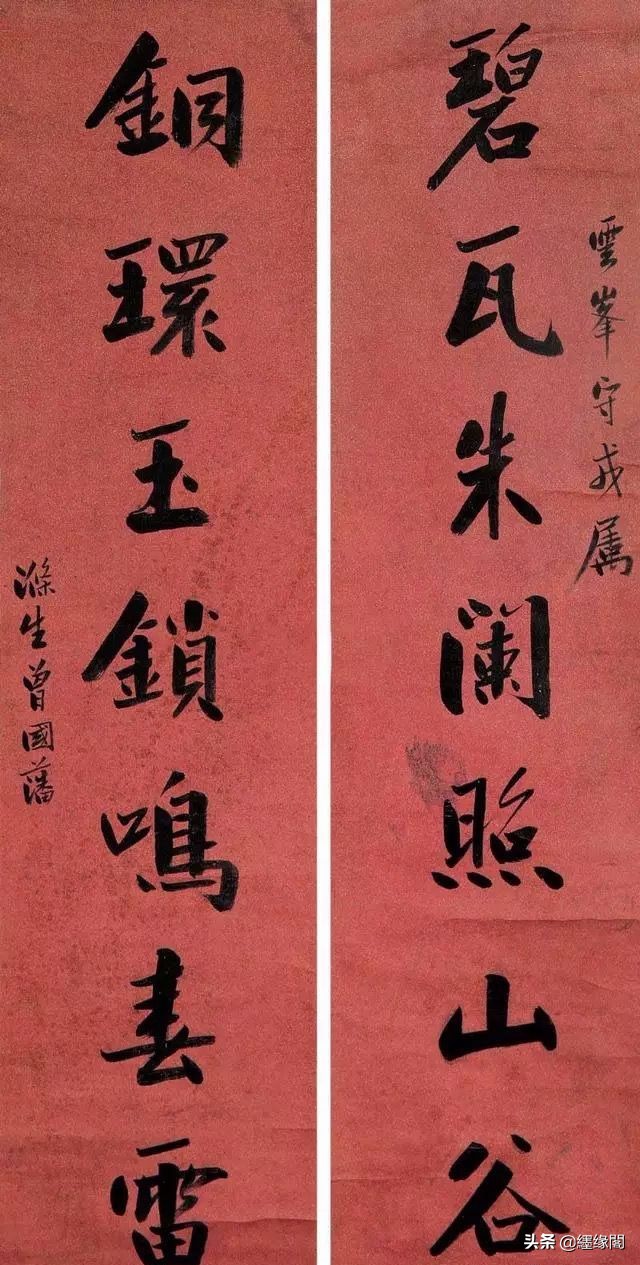 雲峯守戎属
碧瓦朱阑照山谷
銅環玉鎖鳴春雷
滌生曾國藩
头条 @纆缘閣